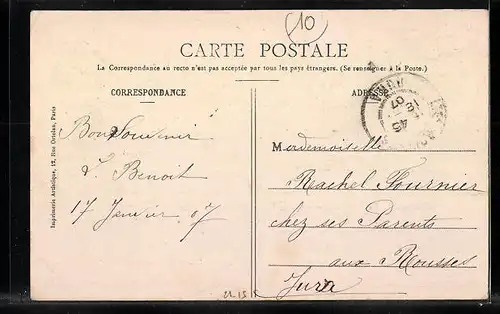 10
CARTE POSTALE
La Correspondance au recto n'est pas acceptée par tous les pays étrangers. (Se renseigner à la Poste.)
CORRESPONDANCE
ADRESSE
Bon Souvenir
Benoit
17 Janvier 07
Mademoiselle
Rachel Fournier
chez ses Parents
aux Rousses
Jura
Imprimerie Artistique, 12, Rue Ortolan, Paris